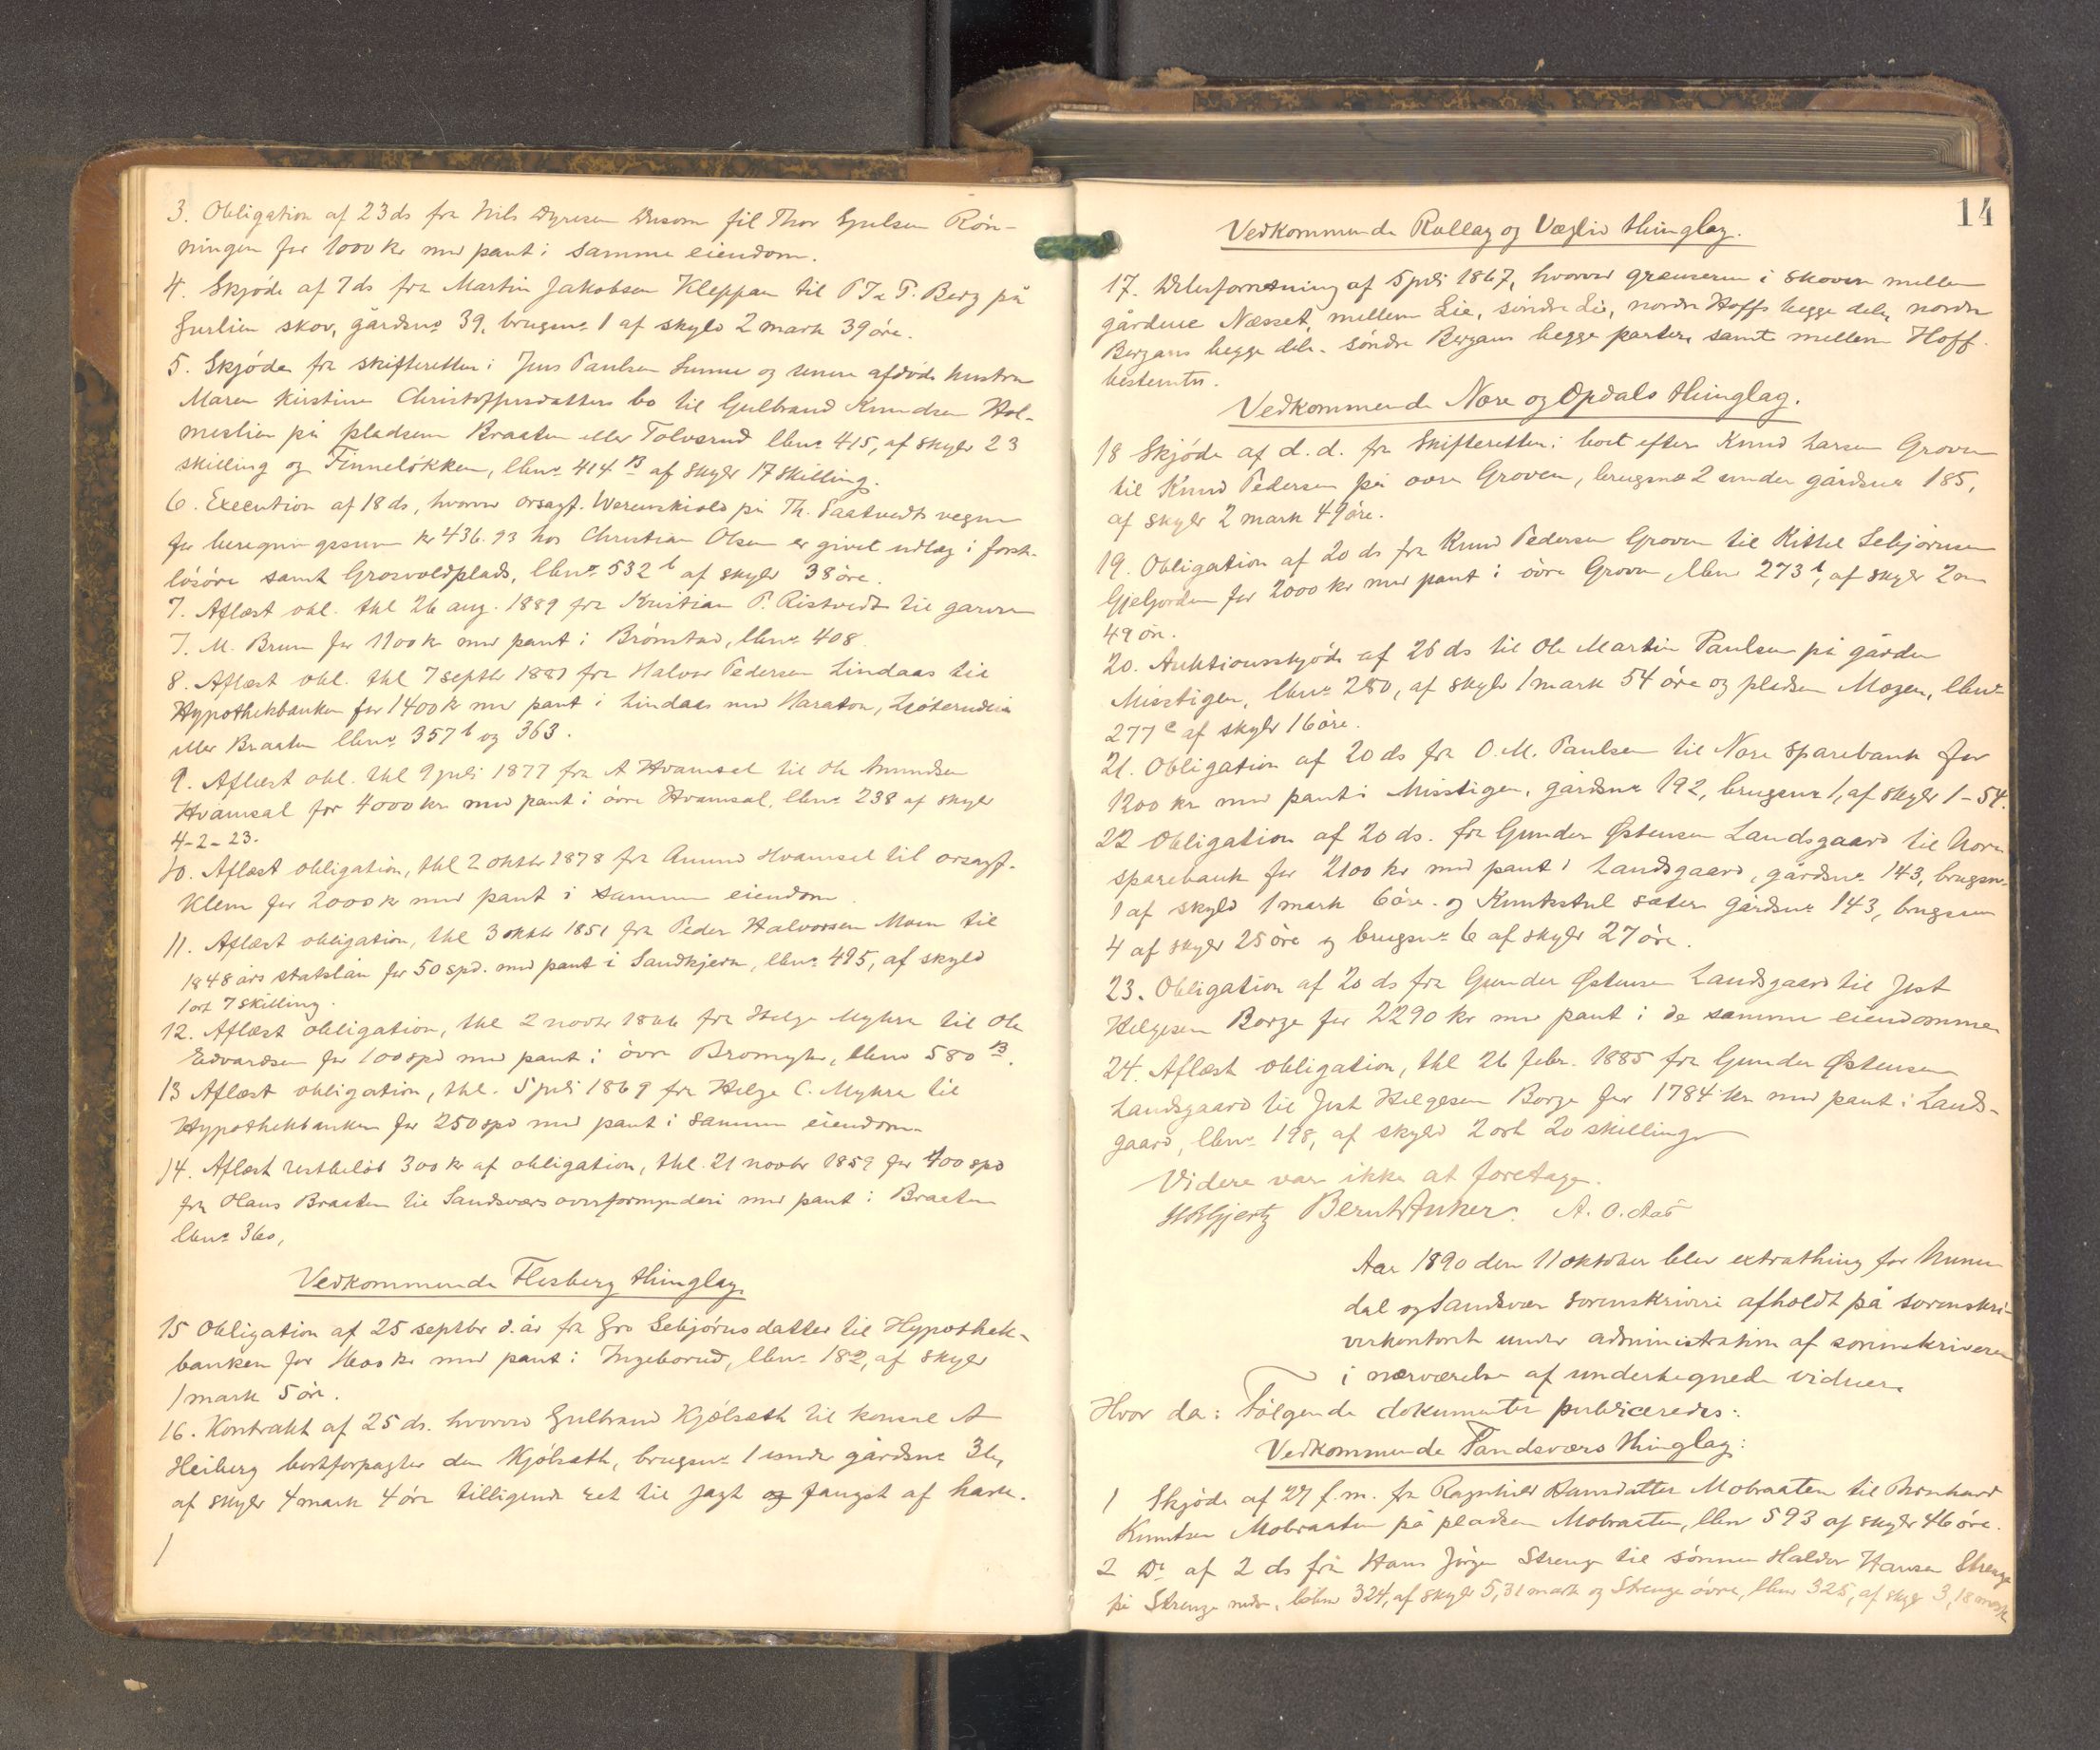 3. Obligation af 23 ds fra Nils Dyresen til Thor Gulsen Rön-
ningen for 1000 kr med pant i samme eiendom.
4. Skjöde af 7 ds fra Martin Jakobsen Kleppan til P. Berg på
skov, gårdsnr 39, brugsnr 1 af skyld 2 mark 39 öre.
5. Skjöde fra skifteretten i Jens Paulsen og senere afdöde hustru
Maren Kirstine Christoffersdatters bo til Gulbrand Knudsen Hol-
meslien på pladsene Braaten eller Tolvsrud lbnr 415, af skyld 23
skilling og Finnelökken, lbnr 414 B af skyld 17 skilling.
6. Execution af 18 ds, hvorved orsagf. Werenskiold på Th. Saatvedts vegne
for beregningssum kr 436.93 hos Christian Olsen er givet udlæg i forsk.
lösöre samt Grosvoldplads, lbnr 532 b af skyld 38 öre.
7. Aflæst obl. thl 26 aug. 1889 fra Kristian P. Ristvedt til garver
J. M. Bruun for 1100 kr med pant i Brönstad, lbnr 408.
8. Aflæst obl. thl 7 septbr 1887 fra Halvor Pedersen Lindaas til
Hypothekbanken for 1400 kr med pant i Lindaas med
eller Braaten lbnr 357 b og 363.
9. Aflæst obl. thl 9 juli 1877 fra A Hvamsal til Ole Amundsen
Hvamsal for 4000 kr med pant i övre Hvamsal, lbnr 238 af skyld
4-2-23.
10. Aflæst obligation, thl 2 oktbr 1878 fra Amund Hvamsal til orsagf.
Klem for 2000 kr med pant i samme eiendom.
11. Aflæst obligation, thl 3 oktbr 1851 fra Peder Halvorsen Moen til
1848 års statslån for 50 spd. med pant i Sandkjern, lbnr 495, af skyld
1 ort 7 skilling.
12. Aflæst obligation, thl 2 novbr 1866 fra Helge Myhra til Ole
Edvardsen for 100 spd med pant i övre Bromyhr, lbnr 580 B.
13 Aflæst obligation, thl. 5 juli 1869 fra Helge C. Myhra til
Hypothekbanken for 250 spd med pant i samme eiendom.
14. Aflæst restbeløb 300 kr af obligation, thl. 21 novbr 1859 for 400 spd
fra Hans Braaten til Sandsværs overformynderi med pant i Braaten
lbnr 360,
Vedkommende Flesberg thinglag.
15 Obligation af 25 septbr d. år fra Gro Sebjörnsdatter til Hypothek-
banken for 1600 kr med pant i Ingeborud, lbnr 182, af skyld
1 mark 5 öre.
16. Kontrakt af 25 ds. hvorved Gulbrand Kjölsæth til konsul A
Heiberg bortforpagter den Kjölsæth, brugsnr 1 under gårdsnr 36,
af skyld 4 mark 4 öre tilligemed ret til jagt og fangst af hare.
14
Vedkommende Rollag og Væglid thinglag.
17. Delesforretning af 5 juli 1867, hvorved grænserne i skoven mellem
gårdene Næsset, mellem Lie, söndre Li, nordre Hoffs begge dele, nordre
Bergans begge dele, söndre Bergans begge parter, samt mellem Hoff
bestemtes.
Vedkommende Nore og Opdals thinglag.
18 Skjöde af d. d. fra Skifteretten i boet efter Knud Larsen Groven
til Knud Pedersen på övre Groven, brugsnr 2 under gårdsnr 185,
af skyld 2 mark 49 öre.
19. Obligation af 20 ds fra Knud Pedersen Groven til Kittel Sebjörnsen
Gjeljorden for 2000 kr med pant i övre Groven, lbnr 273 b, af skyld 2 m
49 öre.
20. Auktionsskjöde af 26 ds til Ole Martin Paulsen på gården
Misstigen, lbnr 280, af skyld 1 mark 54 öre og pladsen Mogen, lbnr
277 c af skyld 16 öre.
21. Obligation af 20 ds fra O. M. Paulsen til Nore sparebank for
1200 kr med pant i Misstigen, gårdsnr 192, brugsnr 1, af skyld 1-54.
22 Obligation af 20 ds. fra Gunder Østensen Landsgaard til Nore
sparebank for 2100 kr med pant i Landsgaard, gårdsnr 143, brugsnr
1 af skyld 1 mark 6 öre. og Kunkstul sæter gårdsnr 143, brugsnr
4 af skyld 25 öre og brugsnr 6 af skyld 27 öre.
23. Obligation af 20 ds fra Gunder Østensen Landsgaard til Jost
Helgesen Borge for 2290 kr med pant i de samme eiendomme
24. Aflæst obligation, thl 26 febr. 1885 fra Gunder Østensen
Landsgaard til Jost Helgesen Borge for 1784 kr med pant i Lands-
gaard, lbnr 198, af skyld 2 ort 20 skilling
Videre var ikke at foretage.
Hjertz Bernt Anker. A. O. Aas
Aar 1890 den 11 oktober blev extrathing for Numme
dal og Sandsvær sorenskriveri afholdt på sorenskri-
verkontoret under administration af sorenskriveren
i nærværelse af undertegnede vidner.
Hvor da: Følgende dokumenter publiceredes:
Vedkommende Sandsværs thinglag:
1 Skjöde af 27 f. m. fra Ragnhild Hansdatter Mobraaten til Bernhard
Knutsen Mobraaten på pladsen Mobraaten, lbnr 593 af skyld 46 öre.
2 Do af 2 ds fra Hans Jörgen Strenge til sönnen Haldor Hansen Strenge
på Strenge nedre, löbnr 324, af skyld 5,31 mark og Strenge övre, lbnr 325, af skyld 3,18 mark